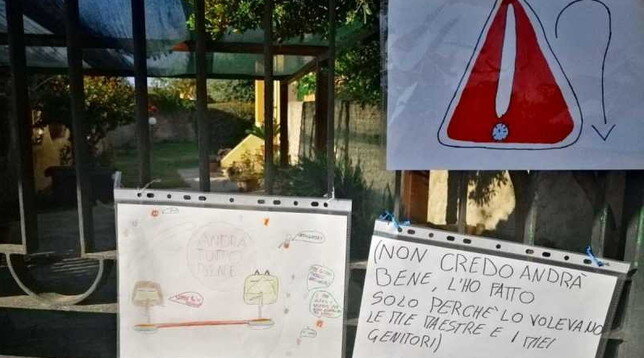 ANDRÀ
TUTTO
BENE
(NON CREDO ANDRÀ
BENE, L'HO FATTO
SOLO PERCHÈ LO VOLEVANO
LE MIE MAESTRE E I MIEI
GENITORI)